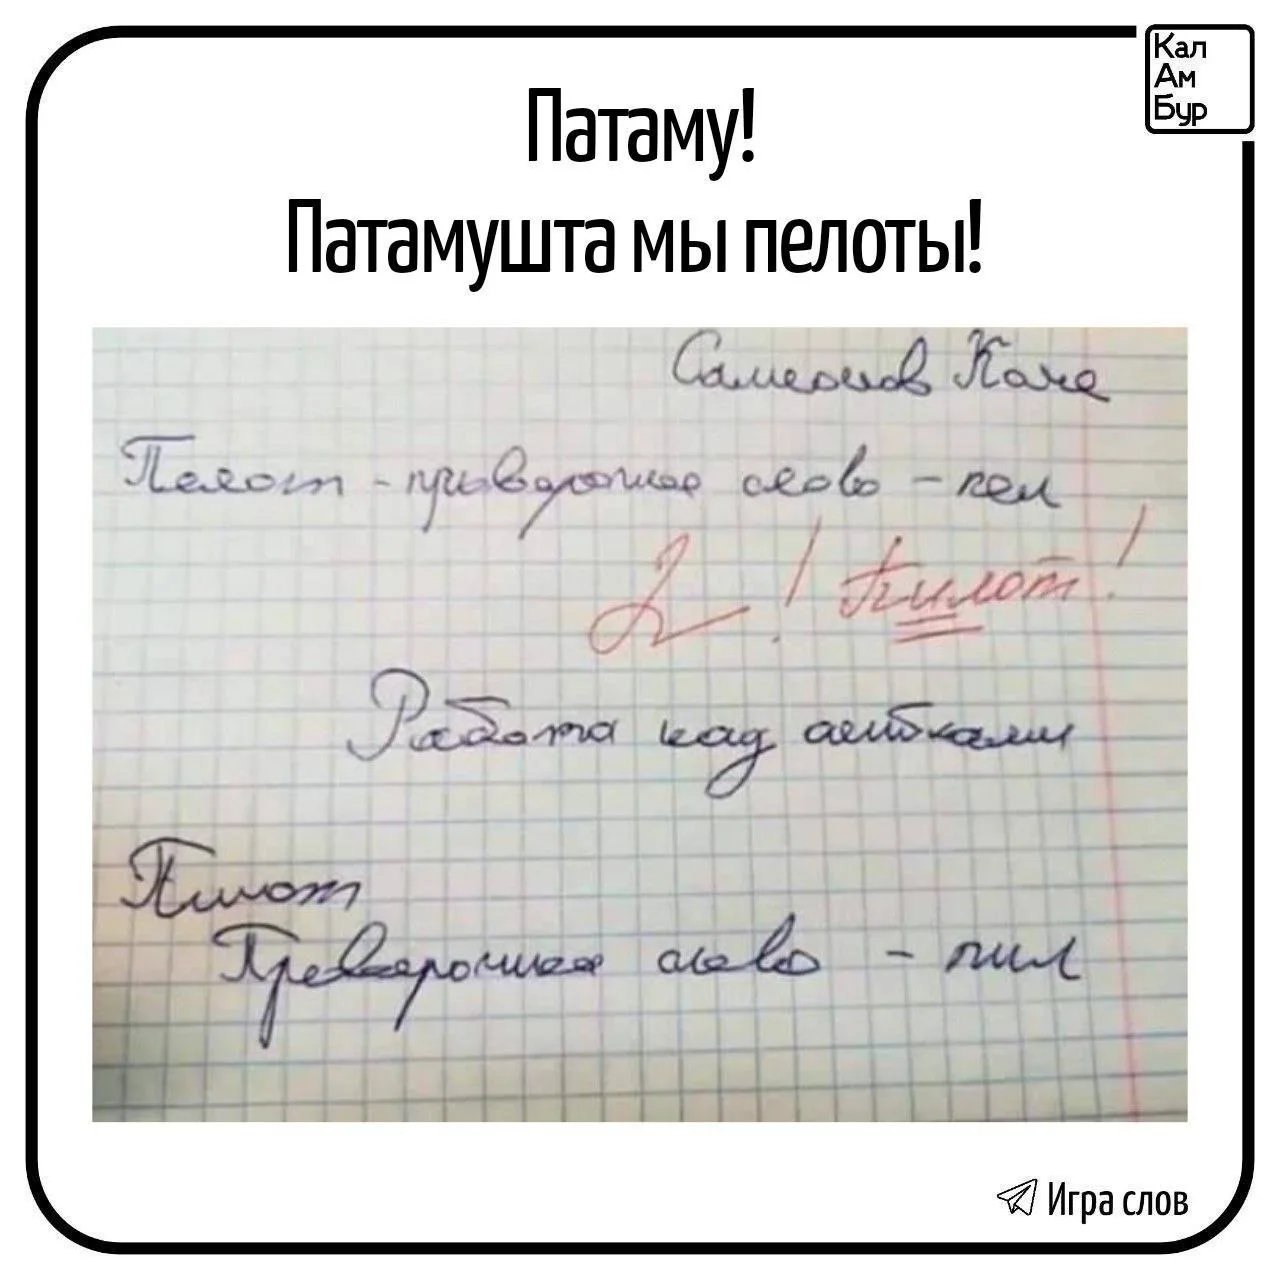 Кал
Ам
Бур
Патаму!
Патамушта мы пелоты!
Самсонов Коля
Пелот - приверочное слово - пел
2! Пилот!
Работа над ашибками
Пилот
Преверочное слово - пил
Игра слов